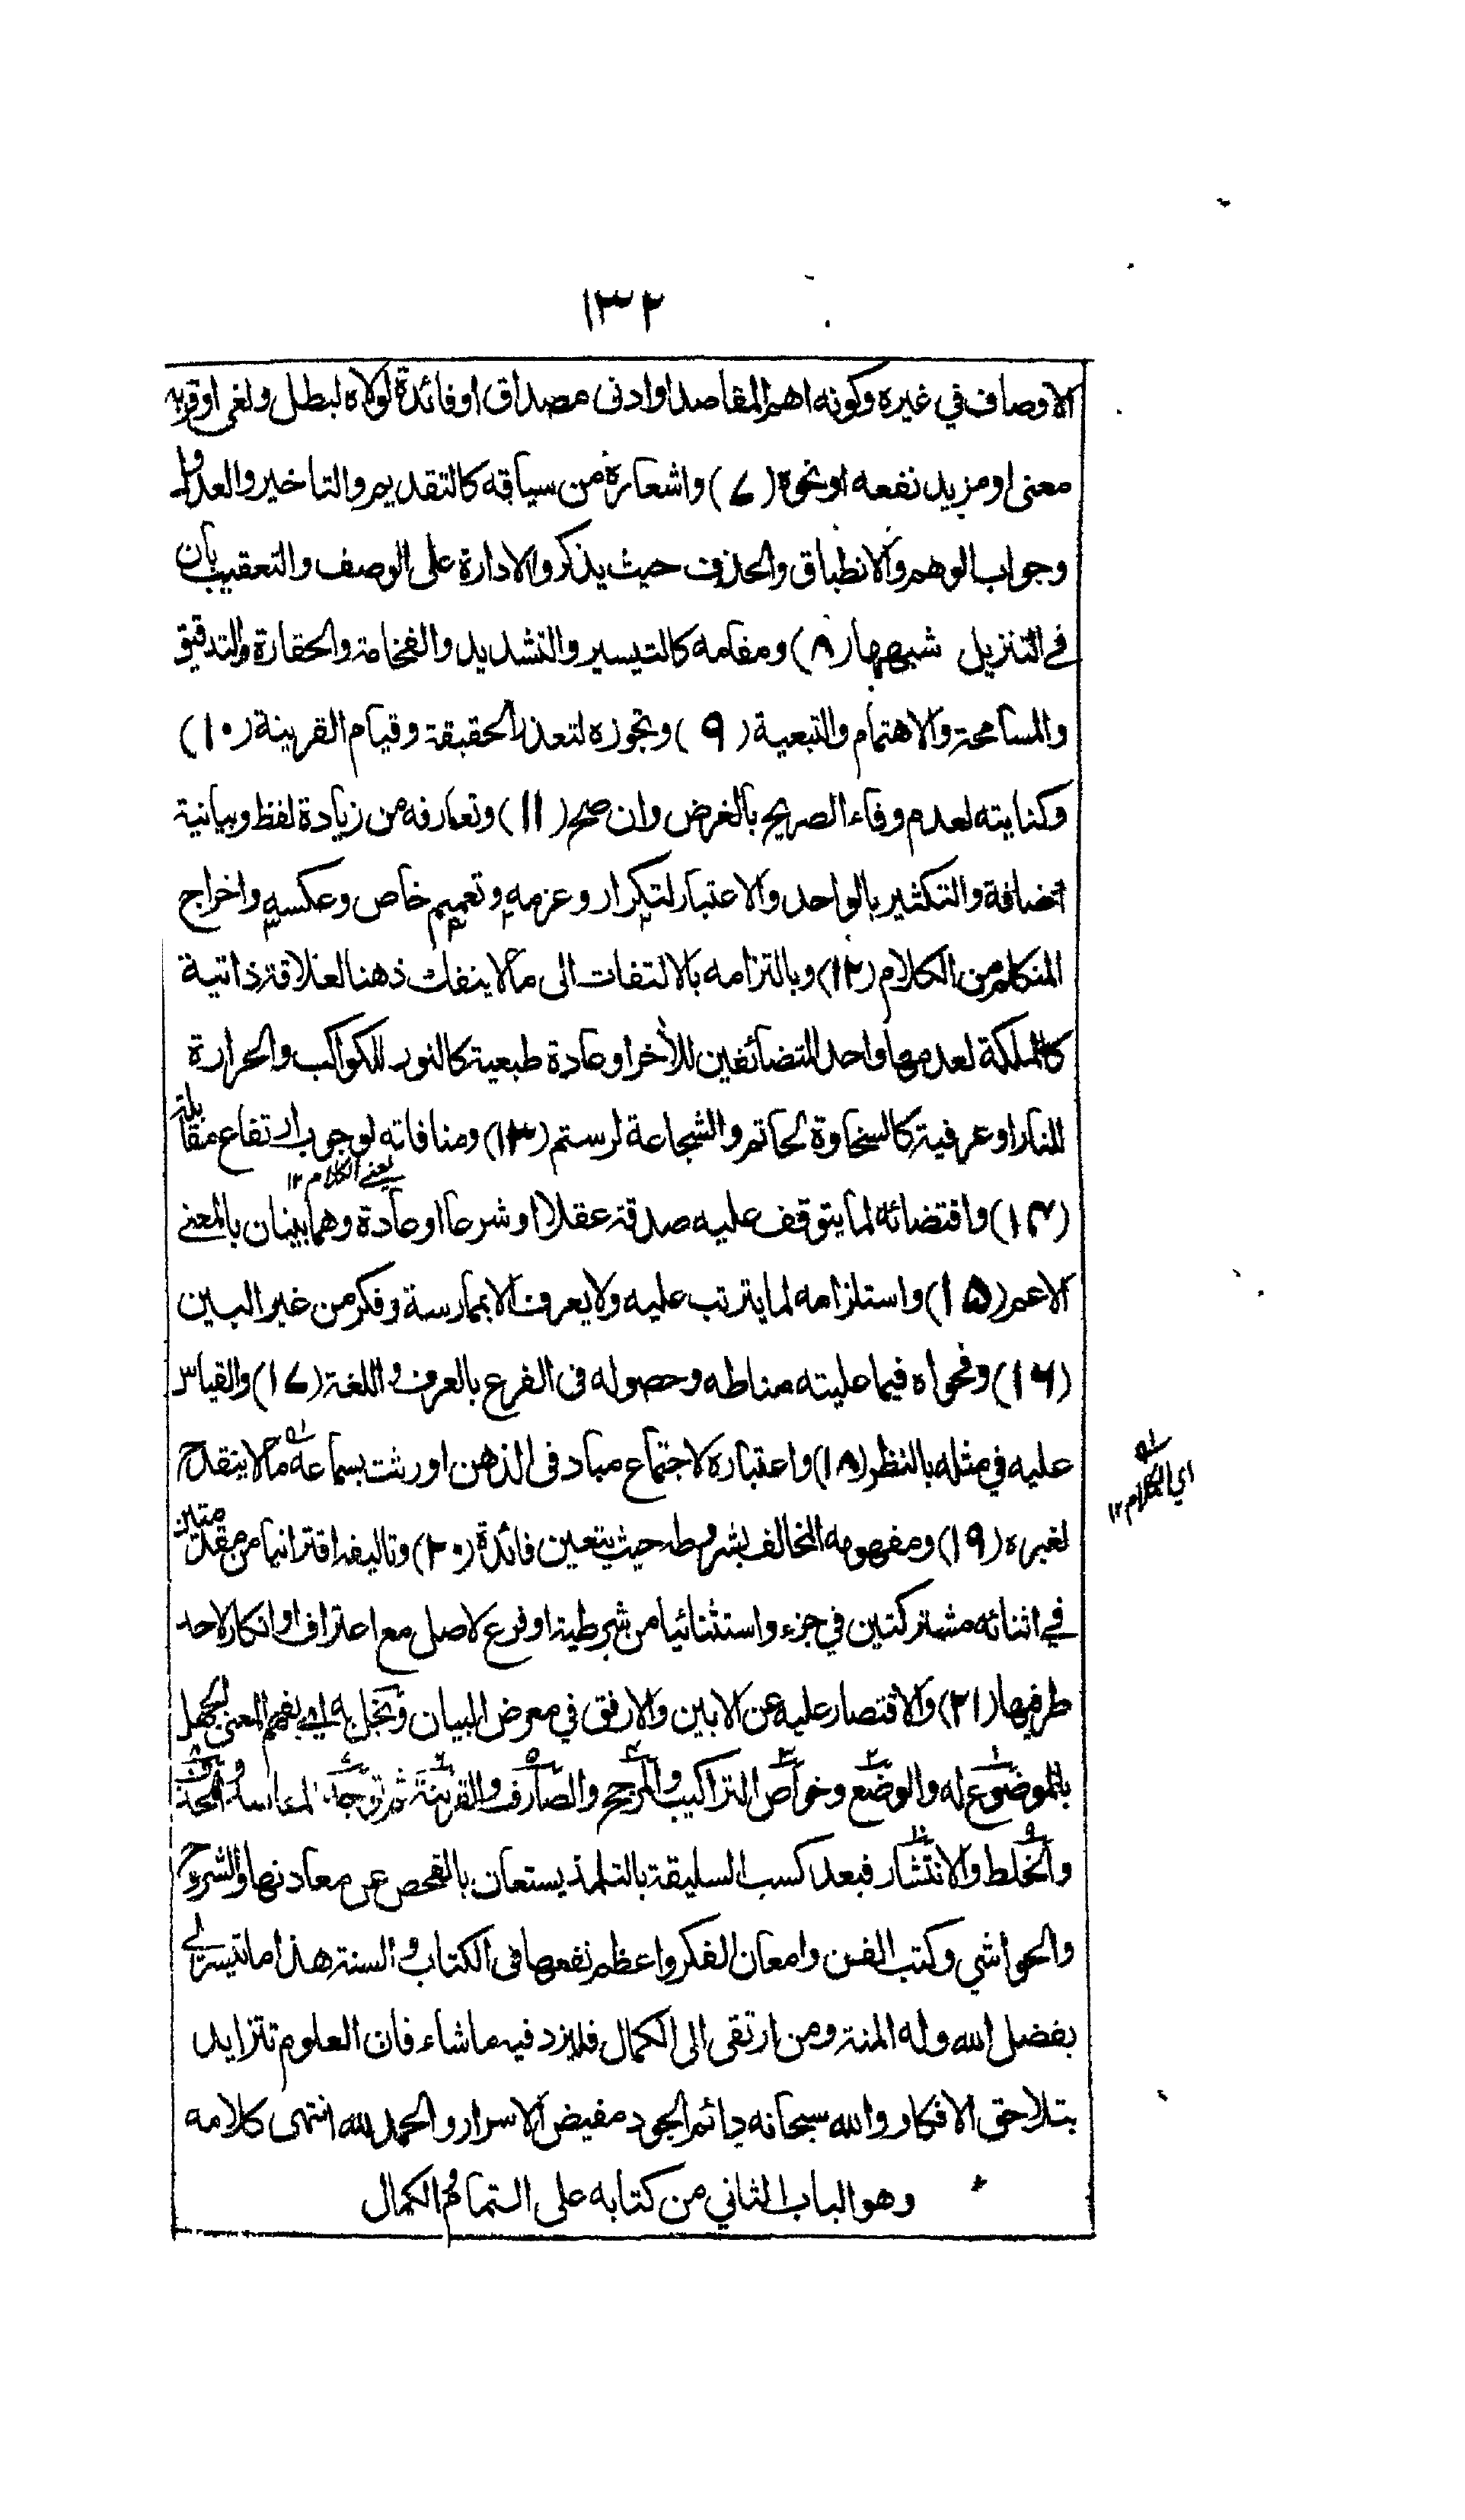 ١٣٢
الاوصاف في غيره وكونه اهم المقاصد او ادنى مصداق او فائدة لولاه لبطل ولغى او قربه
معنى او مزيد نفعه او نحوه (٧) واشعاره من سياقه كالتقديم والتاخير والعدول
وجواب الوهم والانطباق والحذف حيث يذكر والادارة على الوصف والتعقيب بان
في التنزيل شبهها (٨) ومقامه كالتيسير والتشديد والفخامة والحقارة والتدقيق
والمسامحة والاهتمام والتبعية (٩) وتجوزه لتعذر الحقيقة وقيام القرينة (١٠)
وكنايته لعدم وفاء الصريح بالغرض وان صح (١١) وتعارفه من زيادة لفظ وبيانية
اضافة والتكثير بالواحد والاعتبار لتكرار وعزمه وتعميم خاص وعكسه واخراج
المتكلم من الكلام (١٢) وبالتزامه بالالتفات الى ما لا ينفك ذهنا لعلاقة ذاتية
كالملكة لعدمها واحد المتضائفين للأخر او عادة طبعية كالنور للكواكب والحرارة
للنار او عرفية كالسخاوة لحاتم والشجاعة لرستم (١٣) ومنافاته لوجوب ارتفاع مقابله
يعني الكلام ١٢
(١٤) واقتضائه لما يتوقف عليه صدقه عقلا او شرعا او عادة وهما بينان بالمعنى
الاعم (١٥) واستلزامه لما يترتب عليه ولا يعرف الا بممارسة وفكر من غير البين
(١٦) وفحواه فيما عليته مناطه وحصوله في الفرع بالعرف واللغة (١٧) والقياس
عليه في مثله بالنظر (١٨) واعتباره لاجتماع مباد في الذهن اورثت بسماعه ما لا ينقدح
اي الكلام ١٢
لغيره (١٩) ومفهومه المخالف بشروطه حيث يتعين فائدة (٢٠) وتاليفه اقترانيا من مقدمتين
في اثنائه مشتركتين في جزء واستثنائيا من شرطية او فرع لاصل مع اعتراف او انكار لاحد
طرفيها (٢١) والاقتصار عليه عن الابين والارفق في معرض البيان ويخل به اي بفهم المعنى الجهل
بالموضوع له والوضع وخواص التراكيب والمرجح والصارف والقرينة ثم توجد
والخلط والانتشار فبعد كسب السليقة بالتلمذ يستعان بالفحص عن معادنها والشروح
والحواشي وكتب الفن وامعان الفكر واعظم نفعها في الكتاب والسنة هذا ما تيسر لي
بفضل الله وله المنة ومن ارتقى الى الكمال فليزد فيه ما شاء فان العلوم تتزايد
بتلاحق الافكار والله سبحانه دائم الجود مفيض الاسرار والحمد لله انتهى كلامه
وهو الباب الثاني من كتابه على التمام والكمال